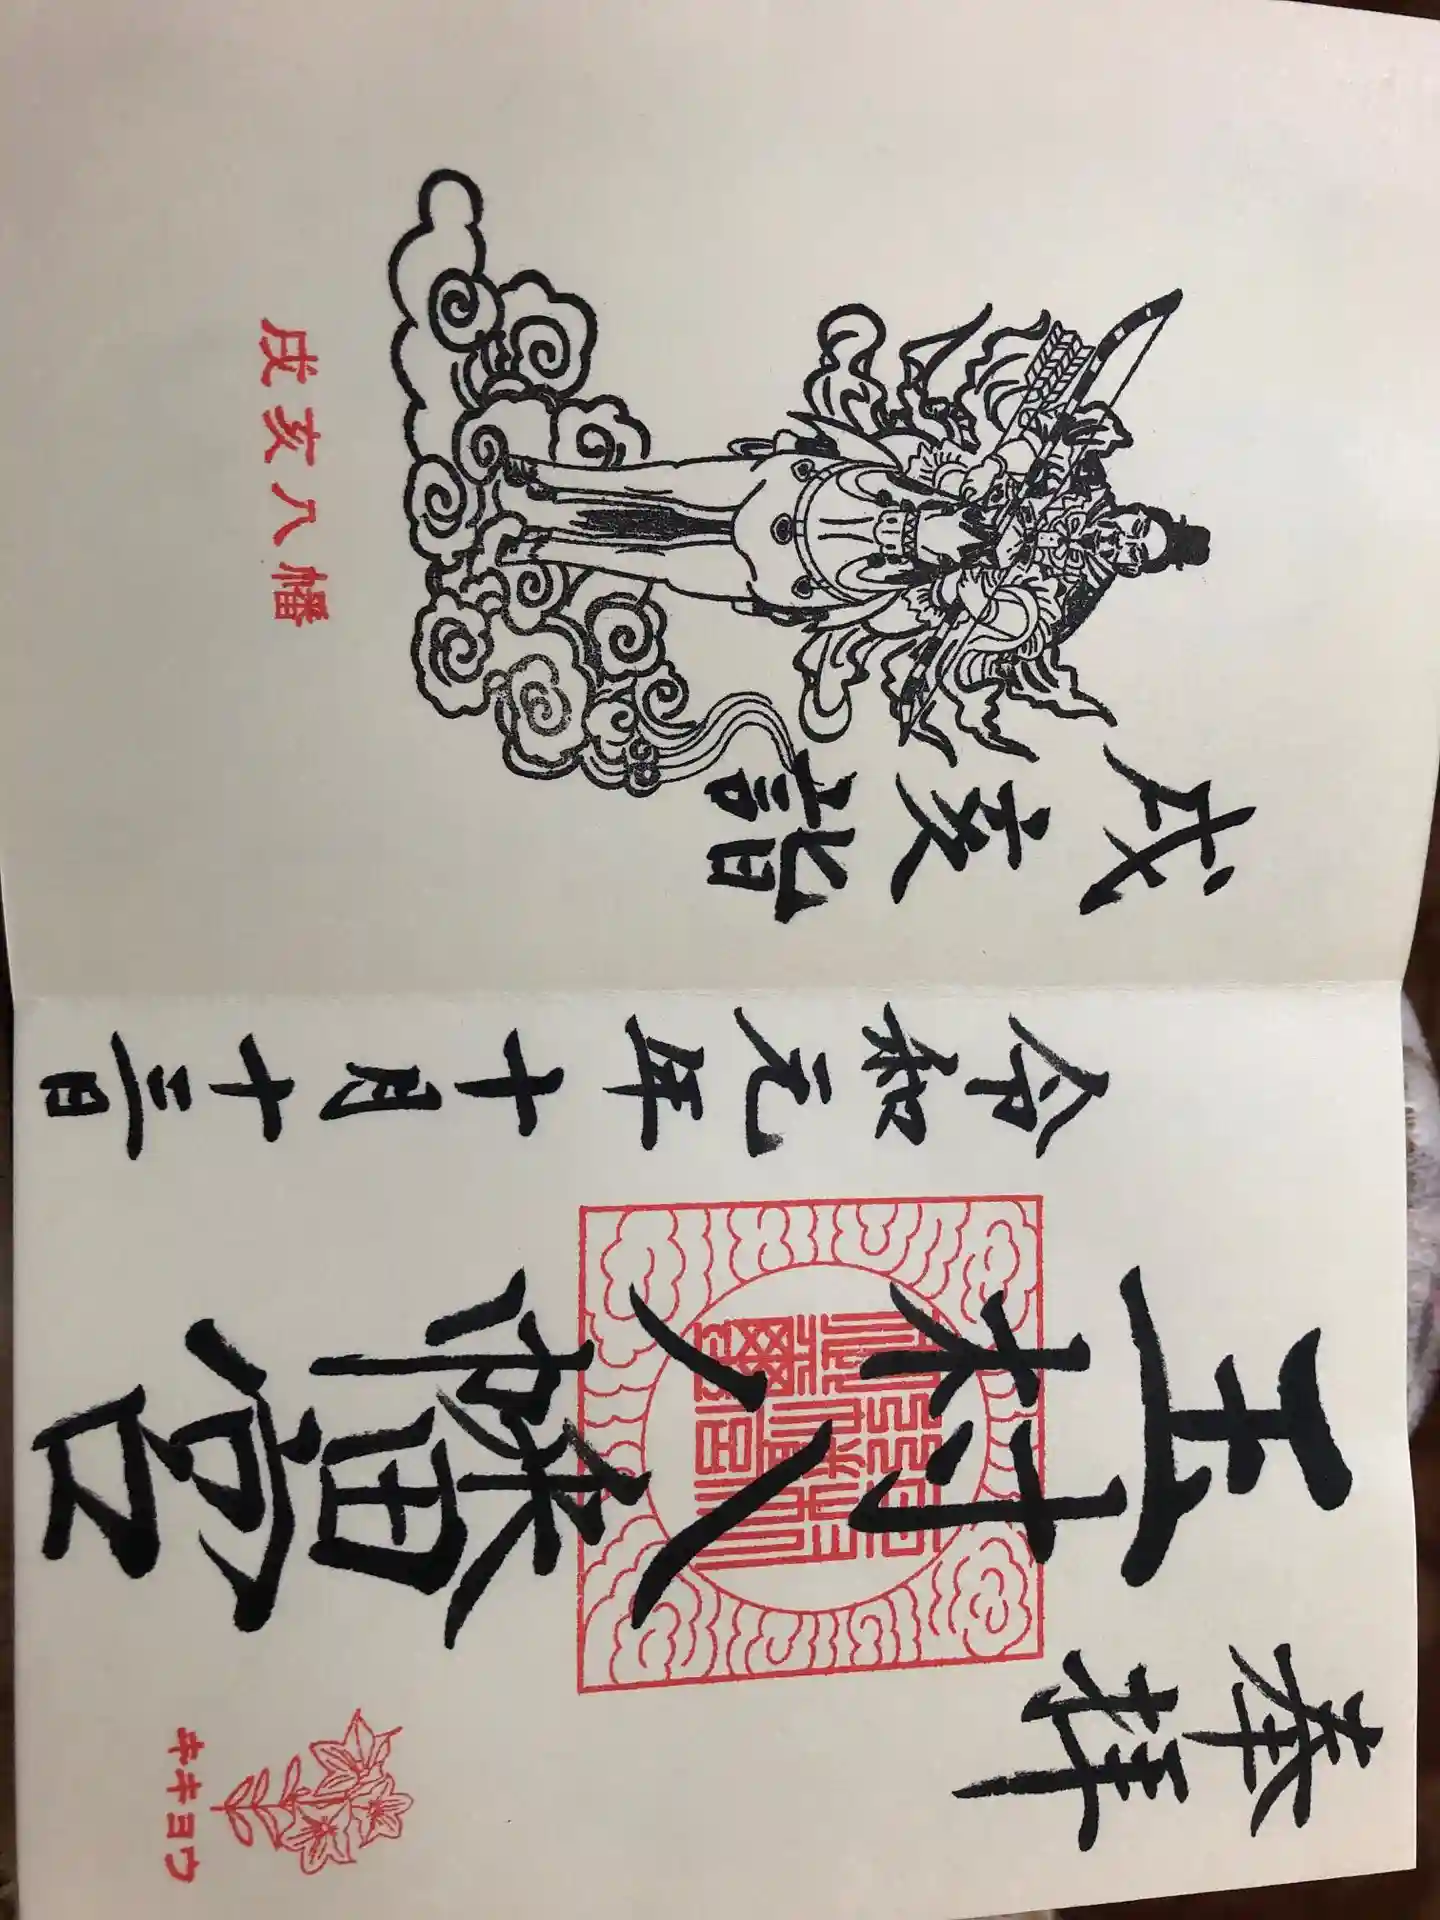 奉拝
玉村八幡宮
キキヨウ
令和元年十月十三日
戌亥詣
戌亥八幡